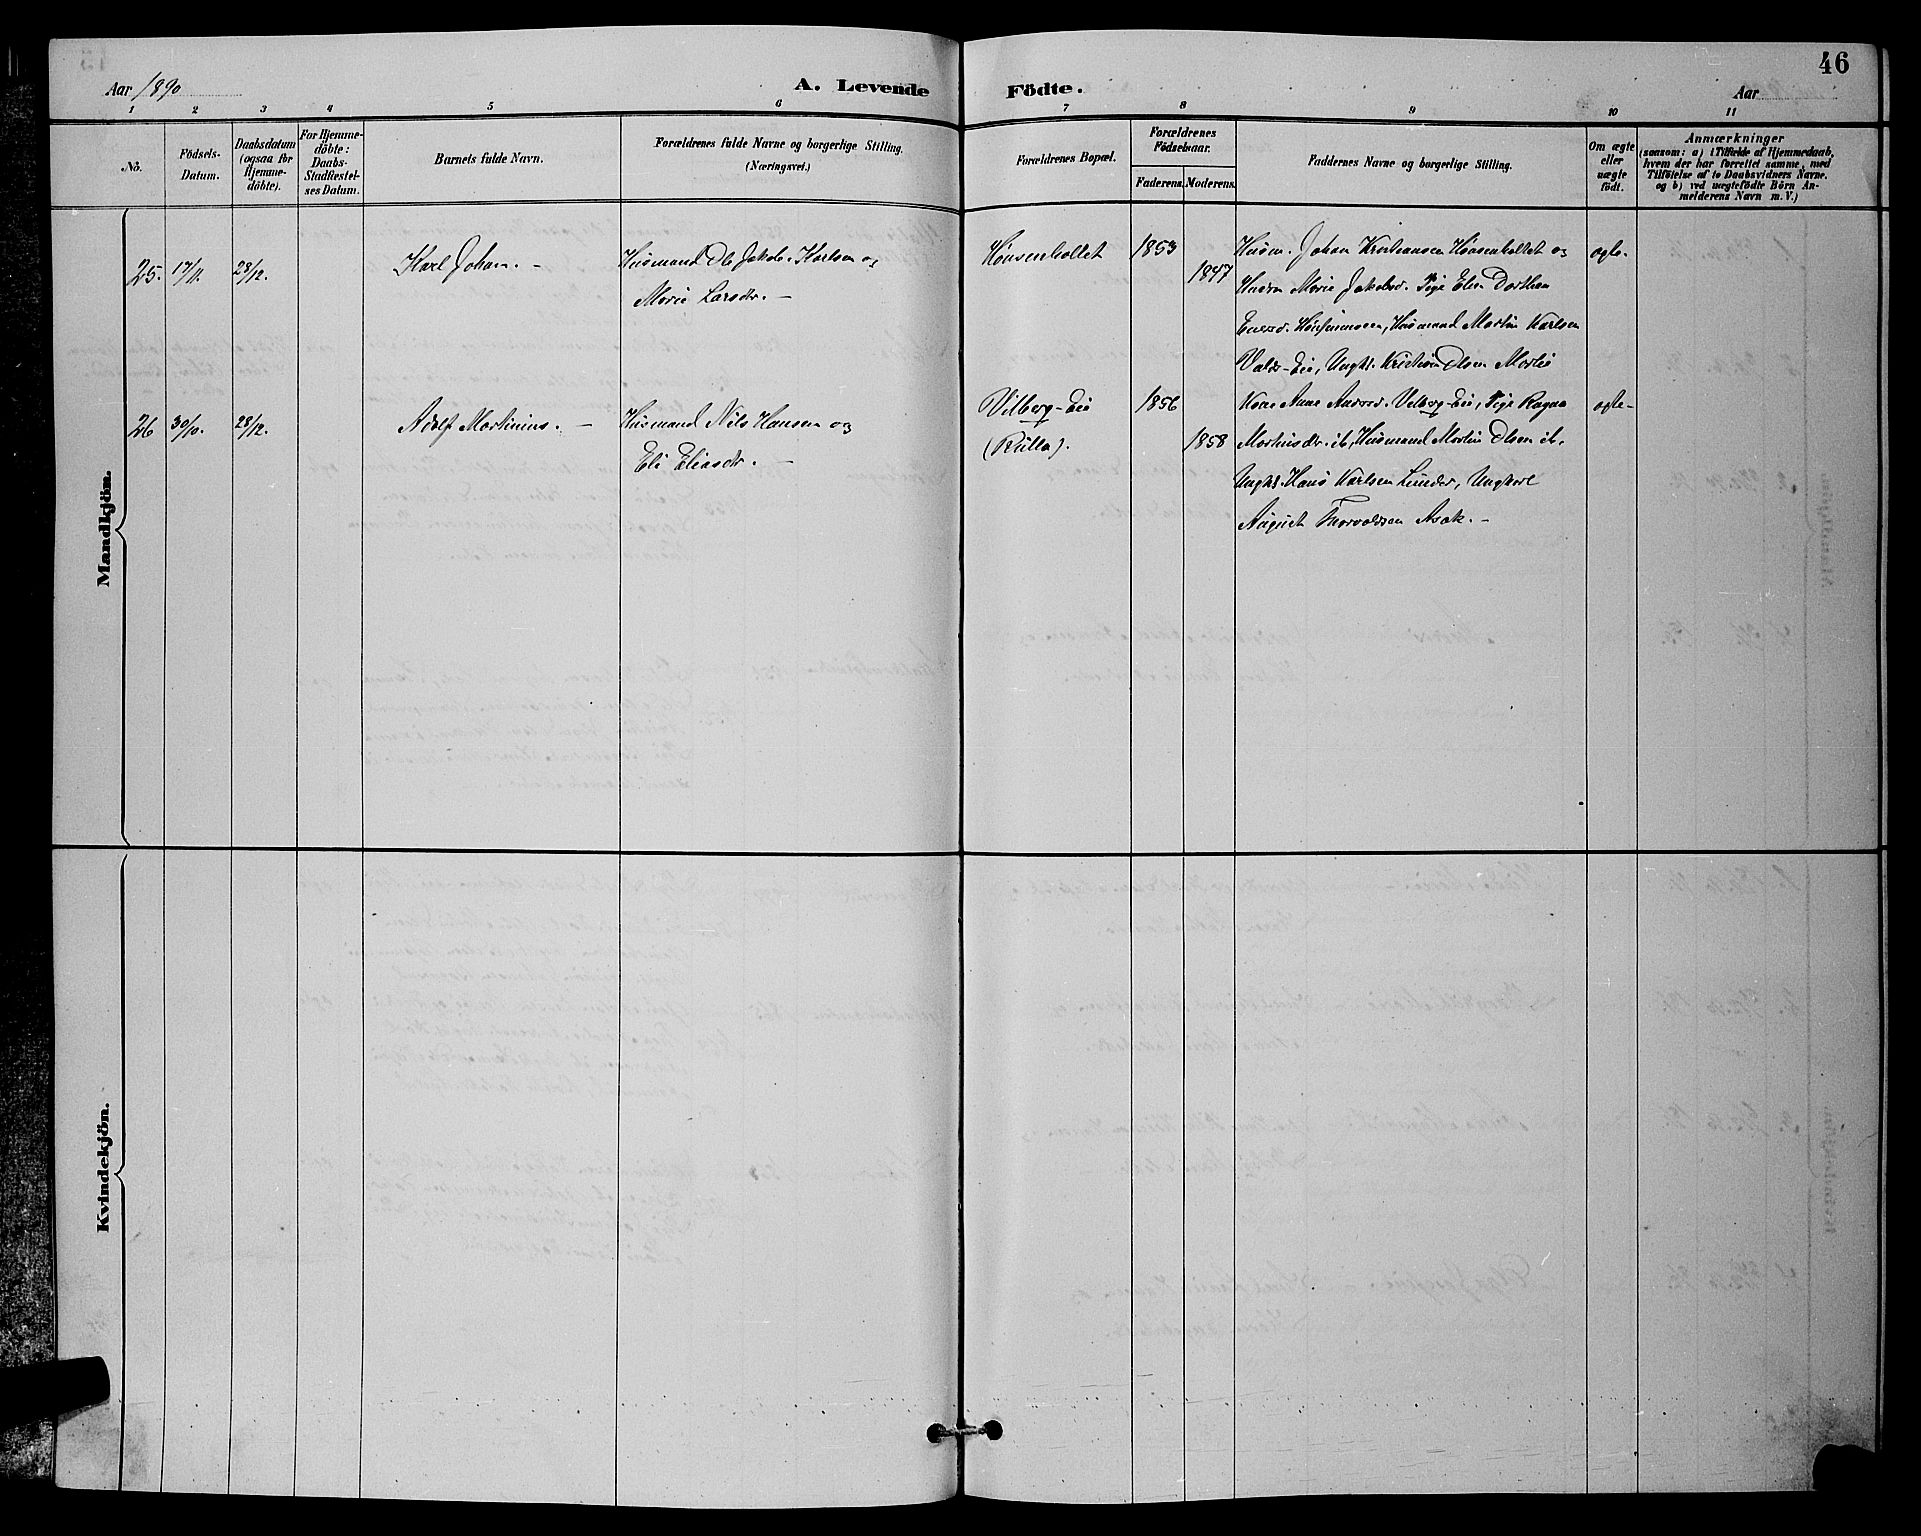 46
Aar 1890
A. Levende Födte.
Aar
1 2 3 4 5 6 7 8 9 10 11
No.
Födsels-
Datum.
Daabsdatum
(ogsaa for
Hjemme-
döbte).
For Hjemme-
döbte:
Daabs-
Stadfæstel-
ses Datum.
Barnets fulde Navn.
Forældrenes fulde Navne og borgerlige Stilling.
(Næringsvei.)
Forældrenes Bopæl.
Forældrenes
Födselsaar.
Faderens. Moderens.
Faddernes Navne og borgerlige Stilling.
Om ægte
eller
uægte
födt.
Anmærkninger
(saasom: a) i Tilfælde af Hjemmedaab,
hvem der har forrettet samme, med
Tilföielse af to Daabsvidners Navne.
og b) ved uægtefödte Börn An-
melderens Navn m. V.)
Mandkjön.
25. 17/11. 28/12. Karl Johan. –
Husmand Ole Jakob Karlsen og
Marie Larsdr. –
Hønsenholtet 1853
1847
Husm. Johan Kristiansen Hønsenholtet og
Hustru Marie Jakobsd. Pige Elen Dorthea
Husmand Martin Karlsen
Valds-Eie, Ungk. Kristian Olsen
ægte.
26 30/10. 28/12. Adolf Martinius. –
Husmand Nils Hansen og
Eli Eliasdr. –
Vilberg-Eie
(Rulla).
1856
1858
Kone Anne Andersd. Vilberg-Eie, Pige Ragna
Martinsdr. ib, Husmand Martin Olsen ib,
Ungk. Hans Karlsen Lunder, Ungkarl
August Thorvaldsen Asak. –
ægte –
Kvindekjön.